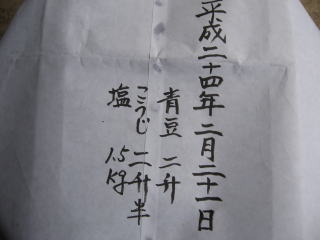 平成二十四年二月二十一日
青豆 二升
こうじ 二升半
塩 1.5kg